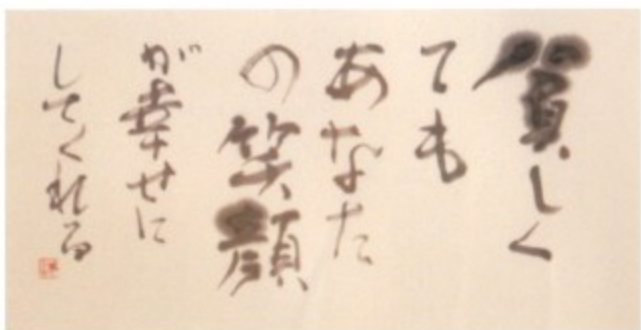 貧しく
ても
あなた
の笑顔
が幸せに
してくれる